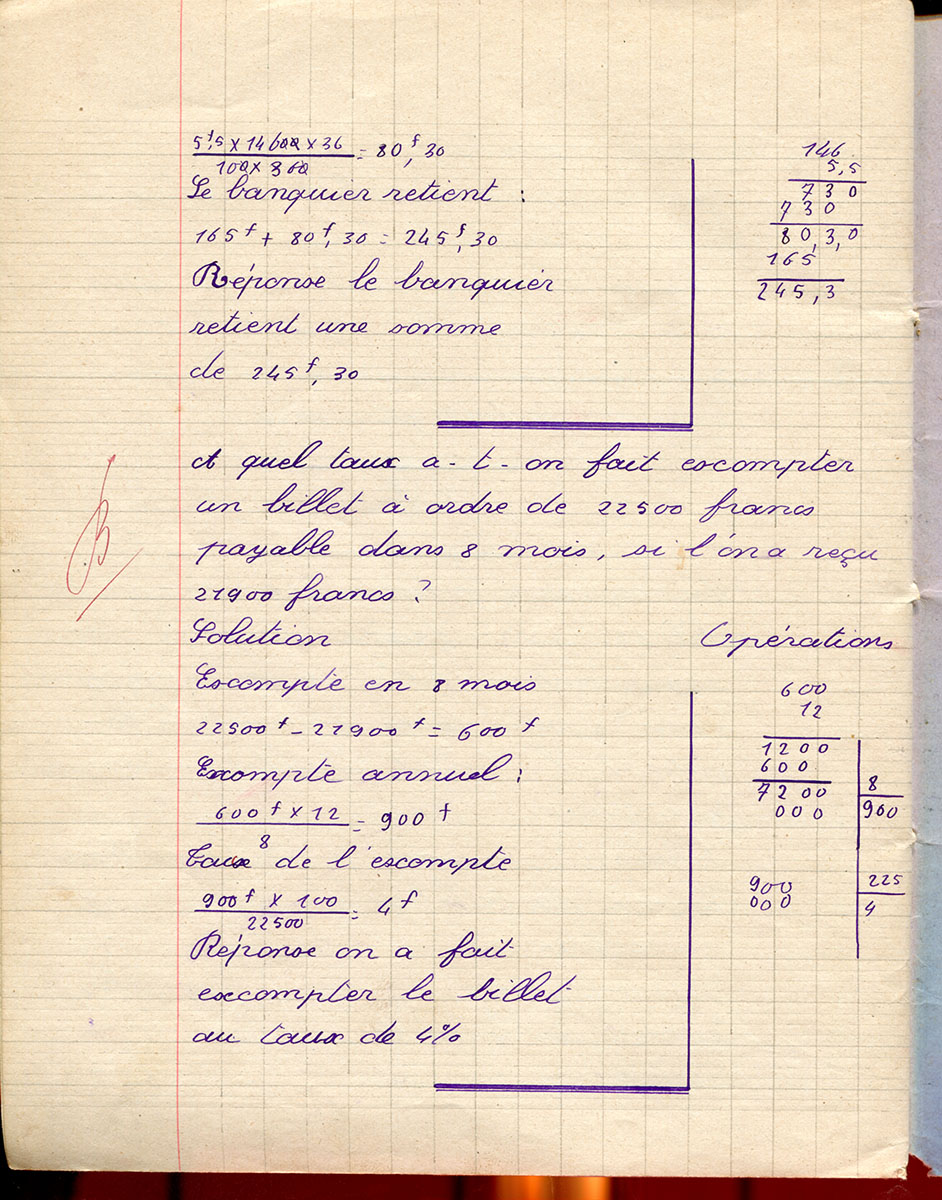 5f,5 x 14600 x 36 = 80f,30
100 x 360
Le banquier retient :
165f + 80f,30 = 245f,30
Réponse le banquier
retient une somme
de 245f,30
146
5,5
730
730
80,3,0
165
245,3
A quel taux a-t-on fait escompter
un billet à ordre de 22500 francs
payable dans 8 mois, si l'on a reçu
21900 francs ?
B
Solution
Opérations
Escompte en 8 mois
22500f - 21900f = 600f
Excompte annuel :
600f x 12 = 900f
8
Taux de l'escompte
900f x 100 = 4f
22500
Réponse on a fait
excompter le billet
au taux de 4%
600
12
1200
600
7200 8
000 900
900 225
000 4